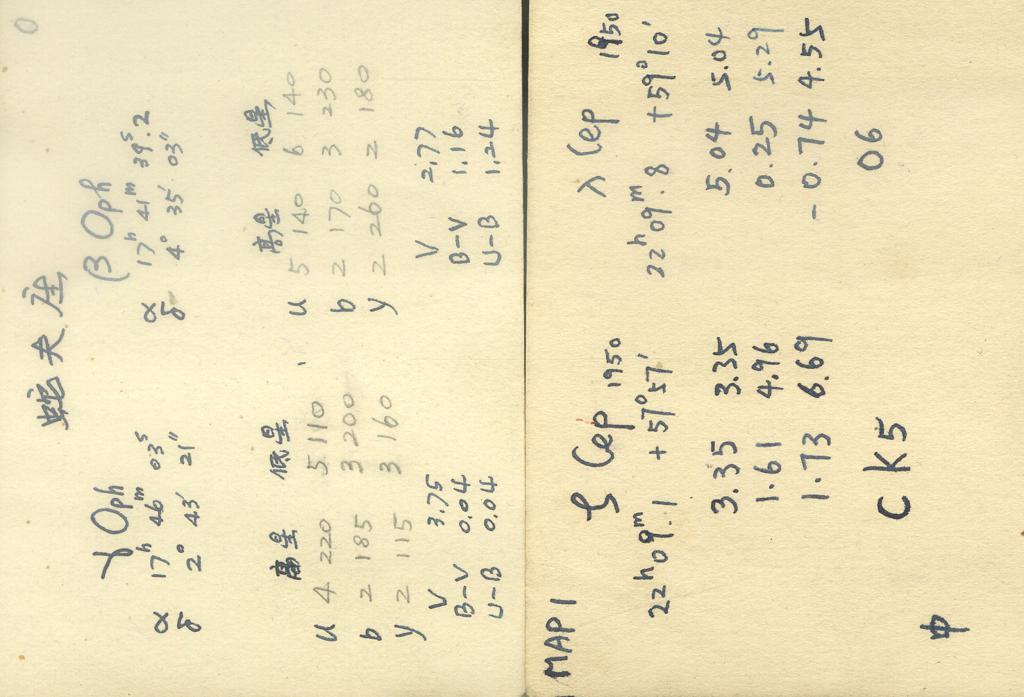 0
蛇夫座
γ Oph β Oph
α 17h 46m 03s α 17h 41m 39s.2
δ 2° 43' 21" δ 4° 35' 03"
高星 低星 高星 低星
u 4 220 5 110 u 5 140 6 140
b 2 185 3 200 b 2 170 3 230
y 2 115 3 160 y 2 260 2 180
V 3.75 V 2.77
B-V 0.04 B-V 1.16
U-B 0.04 U-B 1.24
MAP 1
ζ Cep 1950 λ Cep 1950
22h 09m.1 +57°57' 22h 09m.8 +59°10'
3.35 3.35 5.04 5.04
1.61 4.96 0.25 5.29
1.73 6.69 -0.74 4.55
C K5 O6
中